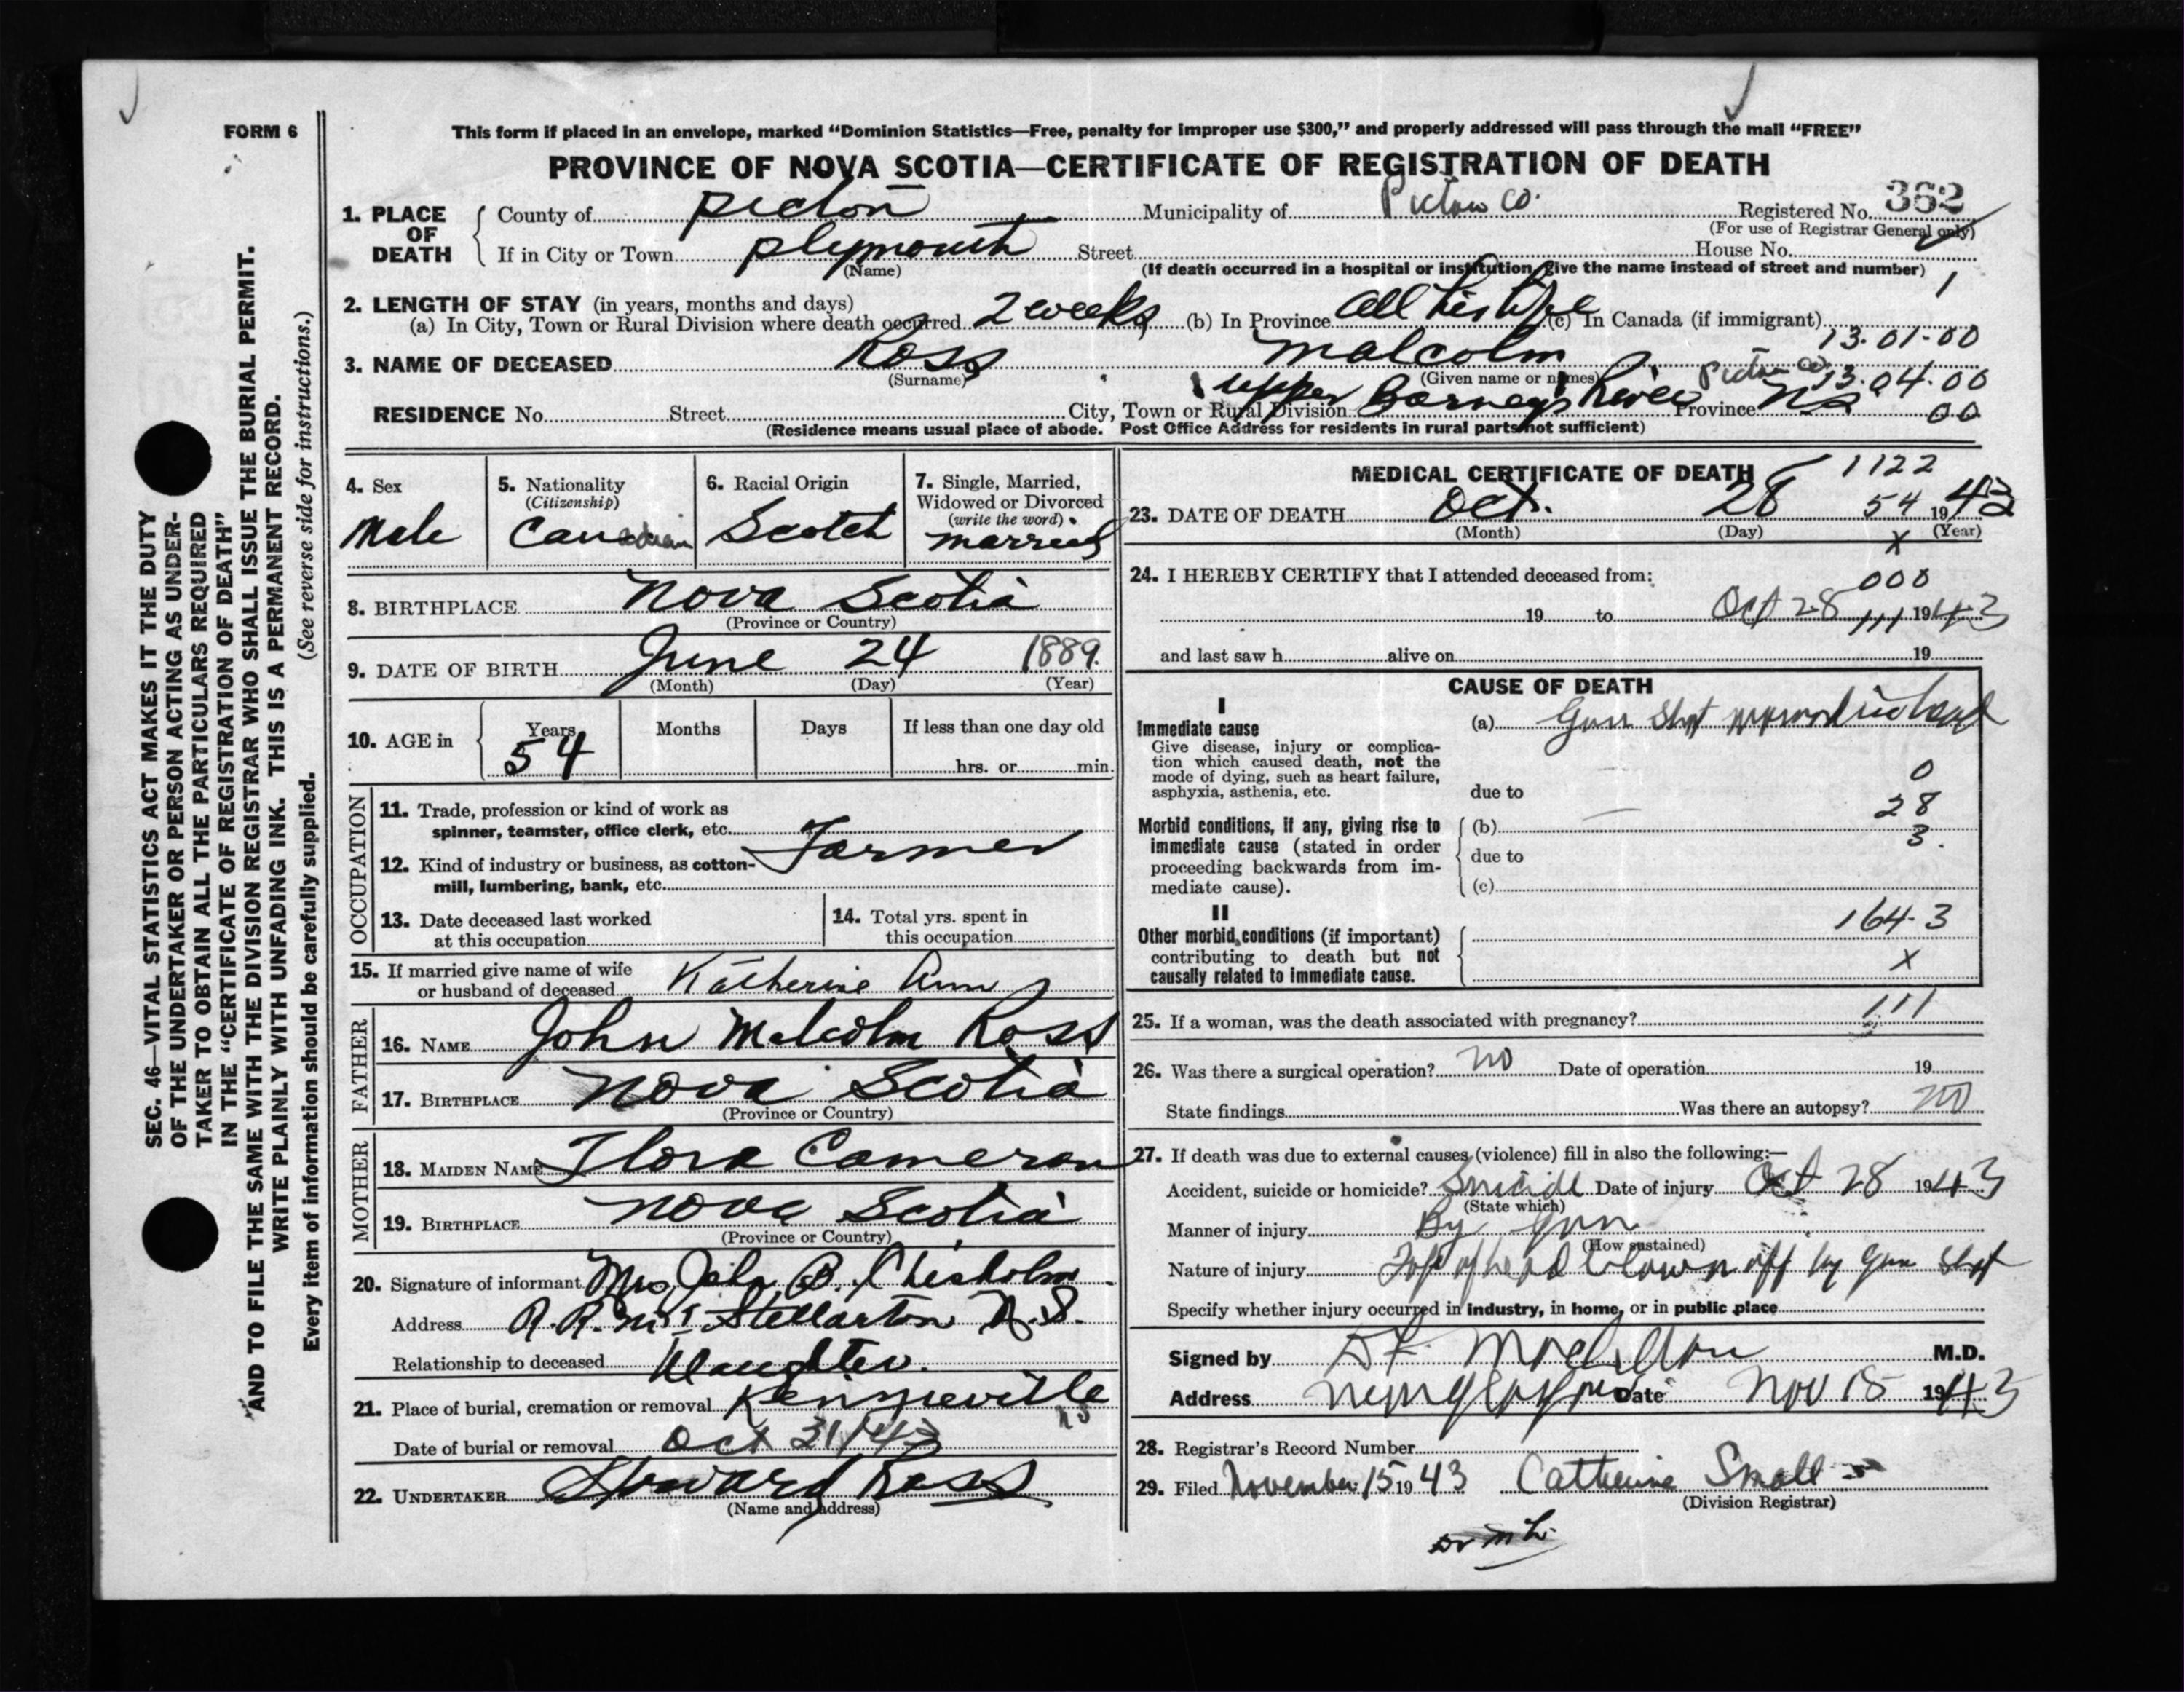 FORM 6
This form if placed in an envelope, marked “Dominion Statistics—Free, penalty for improper use $300,” and properly addressed will pass through the mail “FREE”
PROVINCE OF NOVA SCOTIA—CERTIFICATE OF REGISTRATION OF DEATH
1. PLACE OF DEATH
County of Pictou Municipality of Pictou Co. Registered No. 362
(For use of Registrar General only)
If in City or Town Plymouth Street House No.
(Name) (If death occurred in a hospital or institution give the name instead of street and number) 1
2. LENGTH OF STAY (in years, months and days)
(a) In City, Town or Rural Division where death occurred 2 weeks (b) In Province all his life (c) In Canada (if immigrant)
13.01.00
3. NAME OF DECEASED Ross Malcolm
(Surname) (Given name or names) Pictou Co 13.04.00
RESIDENCE No. Street City, Town or Rural Division Upper Barney's River Province N.S. 00
(Residence means usual place of abode. Post Office Address for residents in rural parts not sufficient)
4. Sex
Male
5. Nationality
(Citizenship)
Canadian
6. Racial Origin
Scotch
7. Single, Married,
Widowed or Divorced
(write the word)
married
8. BIRTHPLACE Nova Scotia
(Province or Country)
9. DATE OF BIRTH June 24 1889.
(Month) (Day) (Year)
10. AGE in
Years Months Days If less than one day old
54 hrs. or min.
OCCUPATION
11. Trade, profession or kind of work as
spinner, teamster, office clerk, etc. Farmer
12. Kind of industry or business, as cotton-
mill, lumbering, bank, etc.
13. Date deceased last worked
at this occupation
14. Total yrs. spent in
this occupation
15. If married give name of wife
or husband of deceased Katherine Ann
FATHER
16. NAME John Malcolm Ross
17. BIRTHPLACE Nova Scotia
(Province or Country)
MOTHER
18. MAIDEN NAME Flora Cameron
19. BIRTHPLACE Nova Scotia
(Province or Country)
20. Signature of informant Mrs John B. Chisholm
Address R.R. no 1 Stellarton N.S.
Relationship to deceased Daughter.
21. Place of burial, cremation or removal Kenzieville
NS
Date of burial or removal Oct 31/43
22. UNDERTAKER Howard Ross
(Name and address)
MEDICAL CERTIFICATE OF DEATH 1122
23. DATE OF DEATH Oct. 28 54 1943
(Month) (Day) (Year)
X
24. I HEREBY CERTIFY that I attended deceased from:
000
19 to Oct 28 111 1943
and last saw h alive on 19
CAUSE OF DEATH
I
Immediate cause
Give disease, injury or complica-
tion which caused death, not the
mode of dying, such as heart failure,
asphyxia, asthenia, etc.
(a) Gun shot wound in head
0
due to
28
Morbid conditions, if any, giving rise to
immediate cause (stated in order
proceeding backwards from im-
mediate cause).
(b)
3.
due to
(c)
II
Other morbid conditions (if important)
contributing to death but not
causally related to immediate cause.
164.3
X
111
25. If a woman, was the death associated with pregnancy?
26. Was there a surgical operation? no Date of operation 19
State findings Was there an autopsy? no
27. If death was due to external causes (violence) fill in also the following:—
Accident, suicide or homicide? Suicide Date of injury Oct 28 1943
(State which)
Manner of injury By gun
(How sustained)
Nature of injury Top of head blown off by gun shot
Specify whether injury occurred in industry, in home, or in public place
Signed by M.D.
Address New Glasgow Date Nov 15 1943
28. Registrar's Record Number
29. Filed November 15 1943 Catherine Small
(Division Registrar)
SEC. 46—VITAL STATISTICS ACT MAKES IT THE DUTY
OF THE UNDERTAKER OR PERSON ACTING AS UNDER-
TAKER TO OBTAIN ALL THE PARTICULARS REQUIRED
IN THE “CERTIFICATE OF REGISTRATION OF DEATH”
AND TO FILE THE SAME WITH THE DIVISION REGISTRAR WHO SHALL ISSUE THE BURIAL PERMIT.
WRITE PLAINLY WITH UNFADING INK. THIS IS A PERMANENT RECORD.
Every item of information should be carefully supplied. (See reverse side for instructions.)